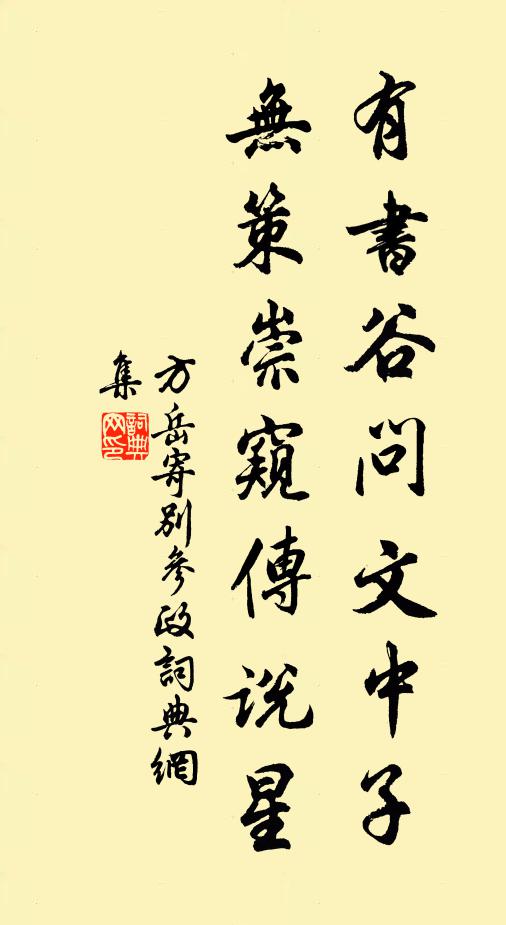 有書谷問文中子
無策崇窺傳說星
方岳寄別參政詞典網
集
詞典网印